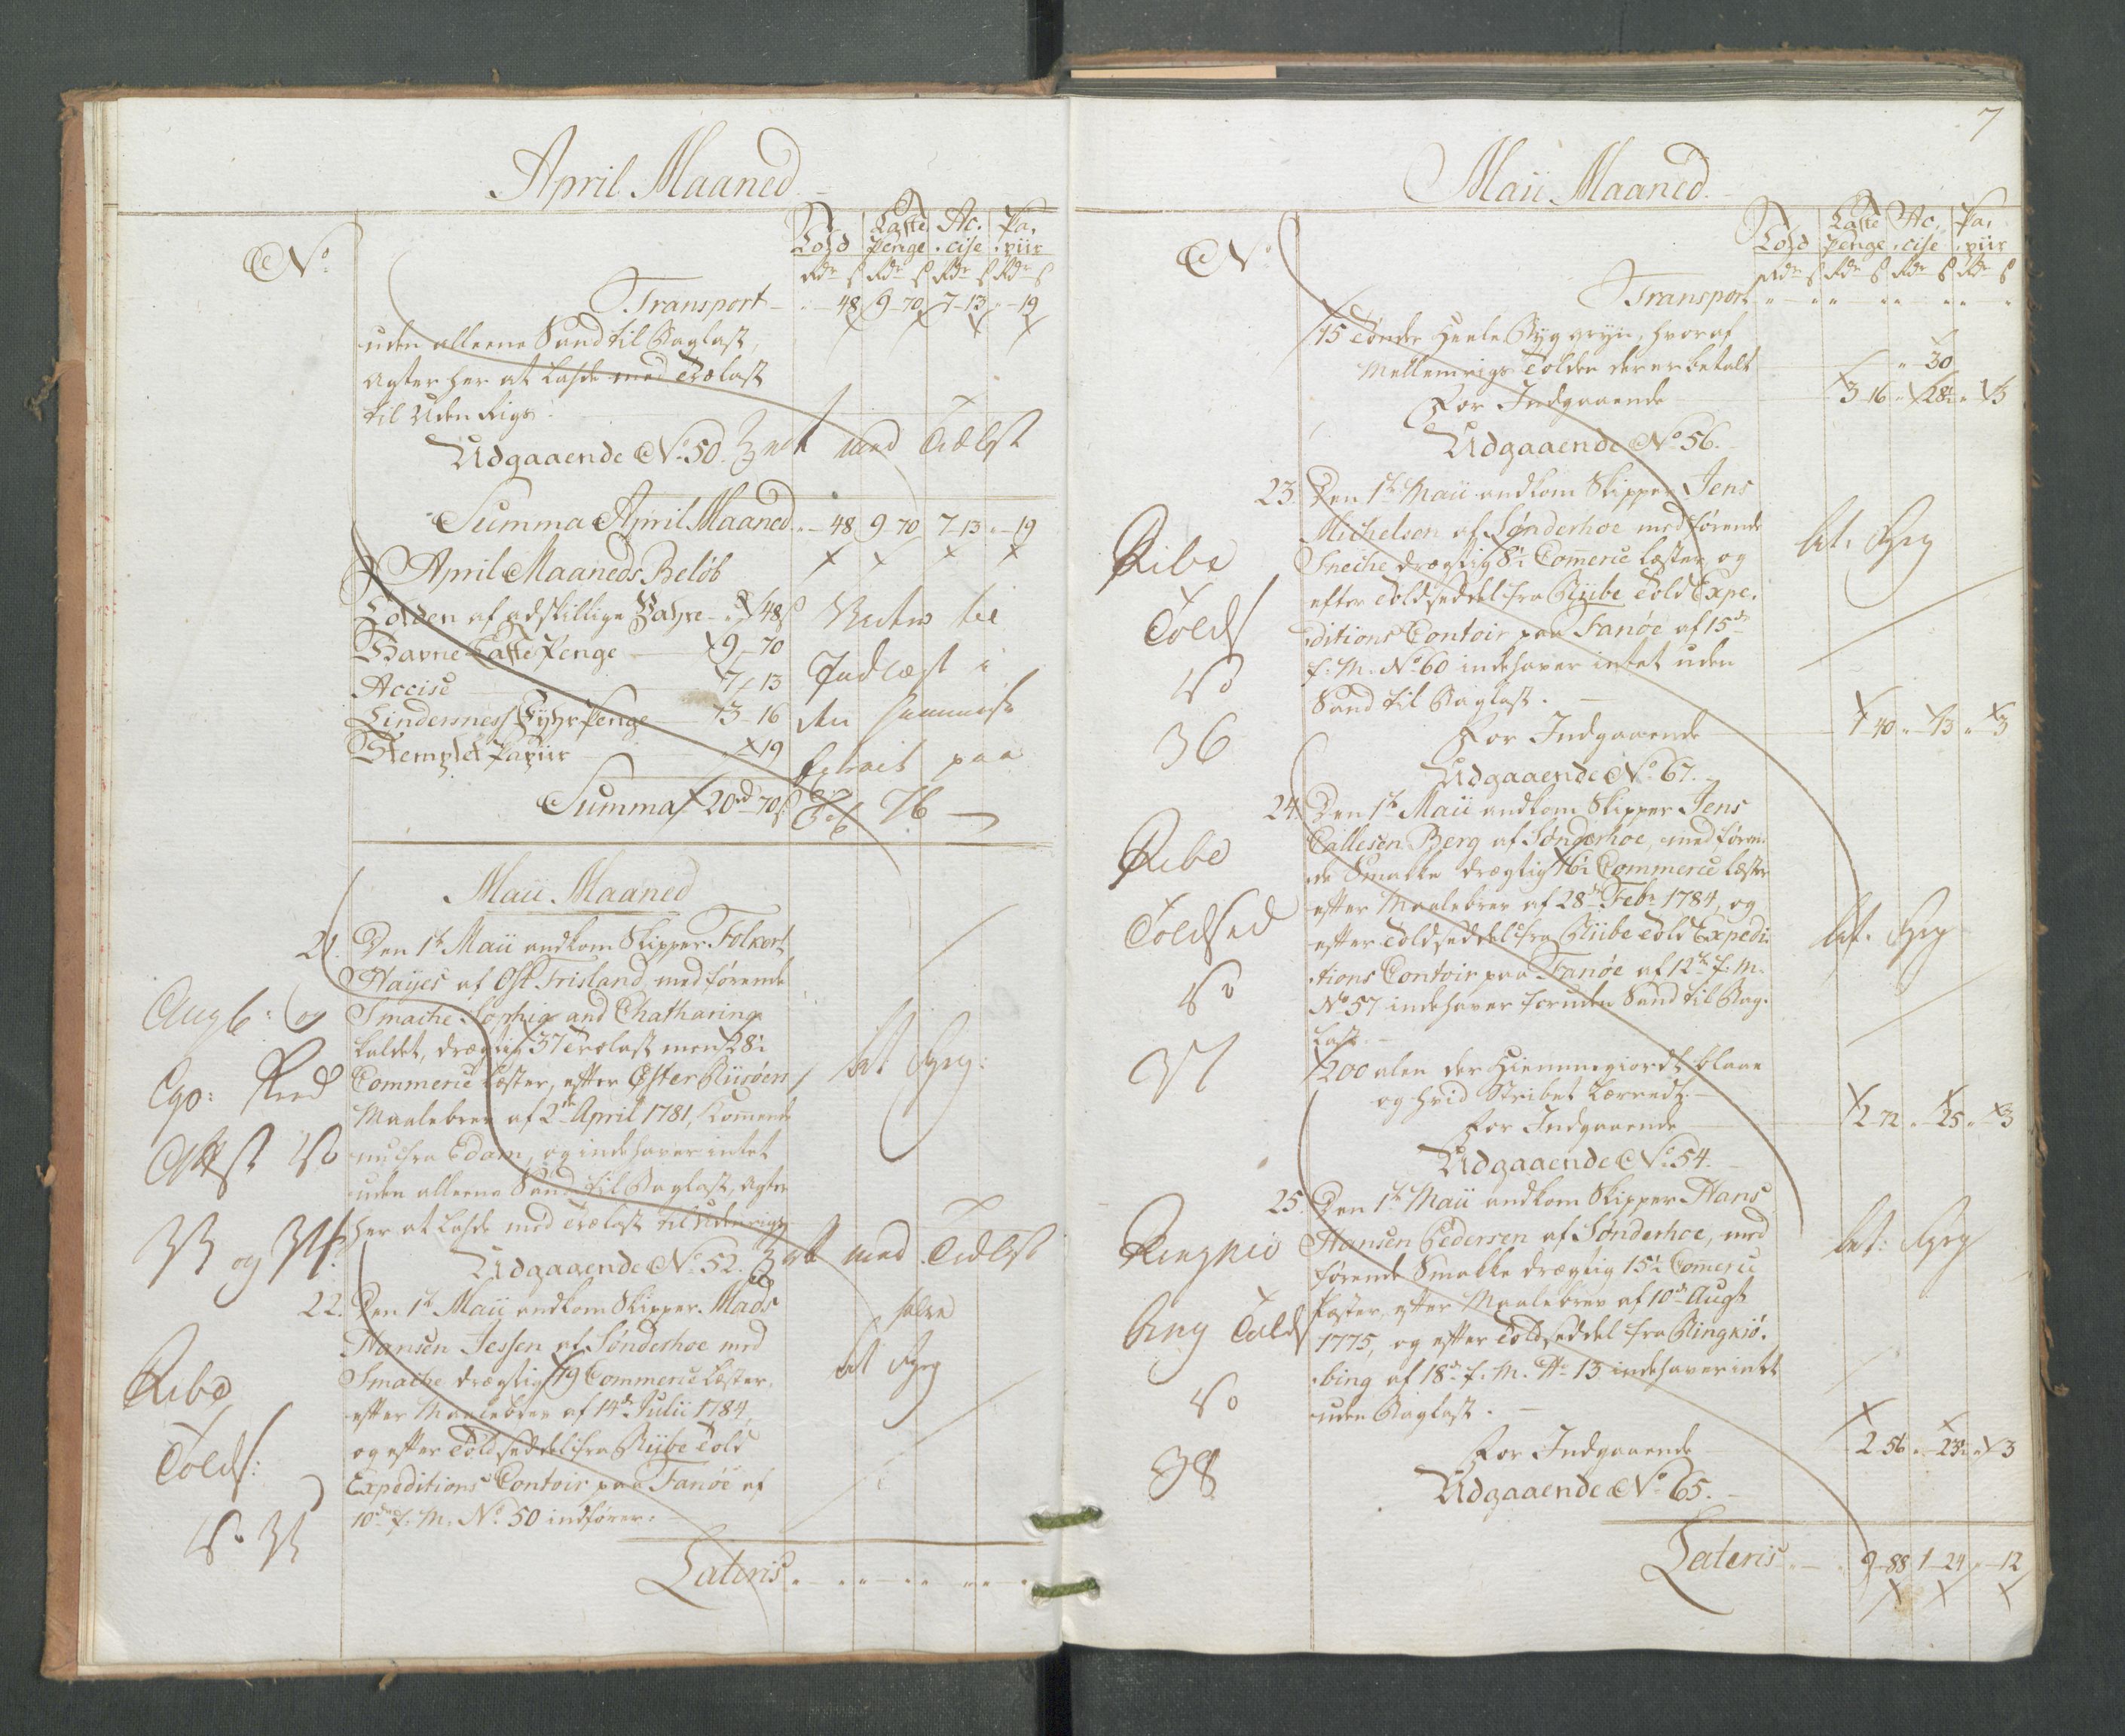 April Maaned
No
Told
Laste penge
Ac- cise
Pa- piir
Rdr s Rdr s Rdr s Rdr s
Transport - 48 9-70 7-13 -19
uden alleene Sand til Baglast,
agter her at lasde med Trælast
til Uden Rigs.
Udgaaende No 50. med Trælast
Summa April Maaned - 48 9-70 7-13 -19
April Maaneds Beløb
Tolden af adskillige Vahre - 48 s
Havne Laste Penge 9-70
Accise 7-13
Lindernes Fyhr Penge 3-16
Stemplet Papiir 19
Summa 20 rd 70 s
paa
76
Maii Maaned
21. Den 1te Maii ankom Skipper Folkert
Hayes af Ost Frisland, medførende
Smache Sophia and Chatharina
kaldet, drægtig 37 Trælast men 28½
Commerce Læster, efter Øster Riisøers
Maalebrev af 2de April 1781, kommende
nu fra Edam, og indehaver intet
uden alleene Sand til Baglast, agter
her at lasde med Trælast til Udenrigs
og
No
33 og 34
Udgaaende No 52. med Trælast
22. Den 1te Maii ankom Skipper Mads
Hansen Jessen af Sønderhoe med
Smache drægtig 19 Commerce Læster,
efter Maalebrev af 14de Julii 1784,
og efter Toldseddel fra Riibe Told
Expeditions Contoir paa Fanøe af
10de f. M. No 50 indfører:
Ribe
Tolds:
No 35
Lateris
7
Maii Maaned
No
Told
Laste penge
Ac- cise
Pa- piir
Rdr s Rdr s Rdr s Rdr s
Transport
15 Tønder Heele Byg gryn, hvoraf
Mellemrigs Tolden der er betalt - 30
For Indgaaende 3-16 - 28½ - 3
Udgaaende No 56.
23. Den 1te Maii ankom Skipper Jens
Michelsen af Sønderhoe medførende
Sneche drægtig 8½ Commerce læster, og
efter Toldseddel fra Riibe Told Expe-
ditions Contoir paa Fanøe af 15de
f. M. No 60 indehaver intet uden
Sand til Baglast.
Ribe
Tolds
No
36
For Indgaaende 1-40 - 13 - 3
Udgaaende No 67.
24. Den 1te Maii ankom Skipper Jens
Callesen Berg af Sønderhoe, medføren-
de Smakke drægtig 16½ Commerce læster
efter Maalebrev af 28de Febr 1784, og
efter Toldseddel fra Riibe Told Expedi-
tions Contoir paa Fanøe af 12te f. M.
No 57 indehaver foruden Sand til Bag-
last.
200 alen der Hiemmegiordt blaae
og hvid Stribet Lærredt.
Ribe
Toldsed
No
37
For Indgaaende 2-72 - 25 - 3
Udgaaende No 54.
25. Den 1te Maii ankom Skipper Hans
Hansen Pedersen af Sønderhoe, med
førende Smakke drægtig 15½ Commerce
Læster, efter Maalebrev af 10de Augt
1775, og efter Toldseddel fra Ringkiø-
bing af 18de f. M. No 13 indehaver intet
uden Baglast.
Ringkiø
bing Tolds
No
38
For Indgaaende 2-56 - 23½ - 3
Udgaaende No 65.
Lateris - 9-88 1-24 - 12